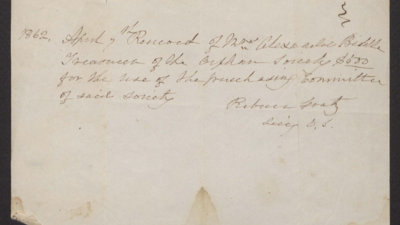 1862. April 7th Received of Mrs Alexander Biddle
Treasurer of the Orphan Society $500
for the use of the purchasing Committee
of said Society
Rebecca Gratz
Secy O. S.